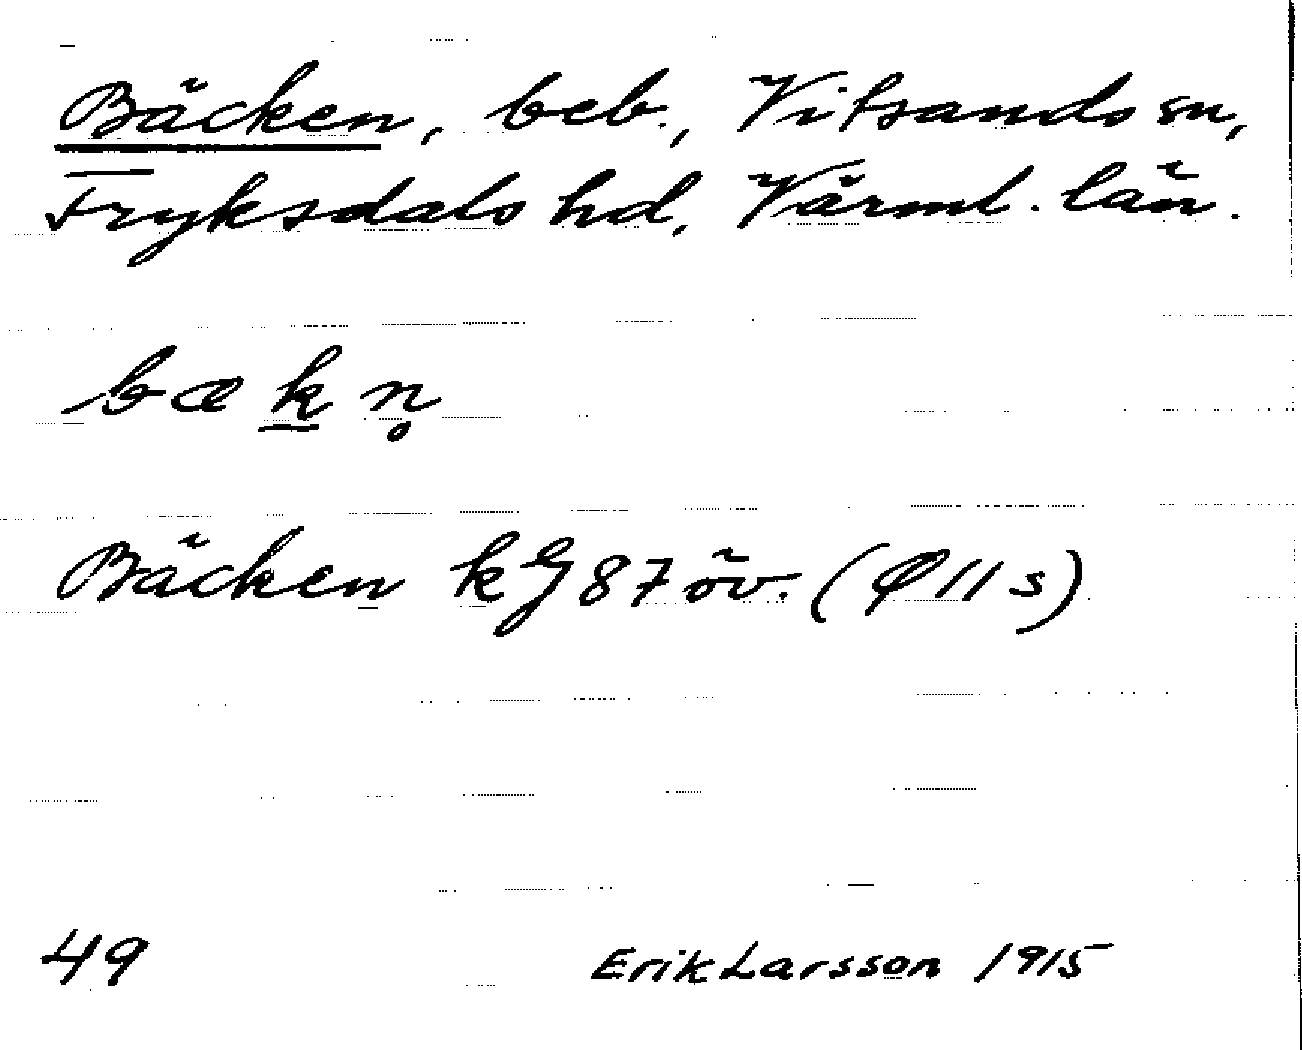 Bäcken, beb., Vitsands sn,
Fryksdals hd, Värml. län.
bæk̲n̥
Bäcken kG 87 öv. (Ø 11 s)
49 Erik Larsson 1915